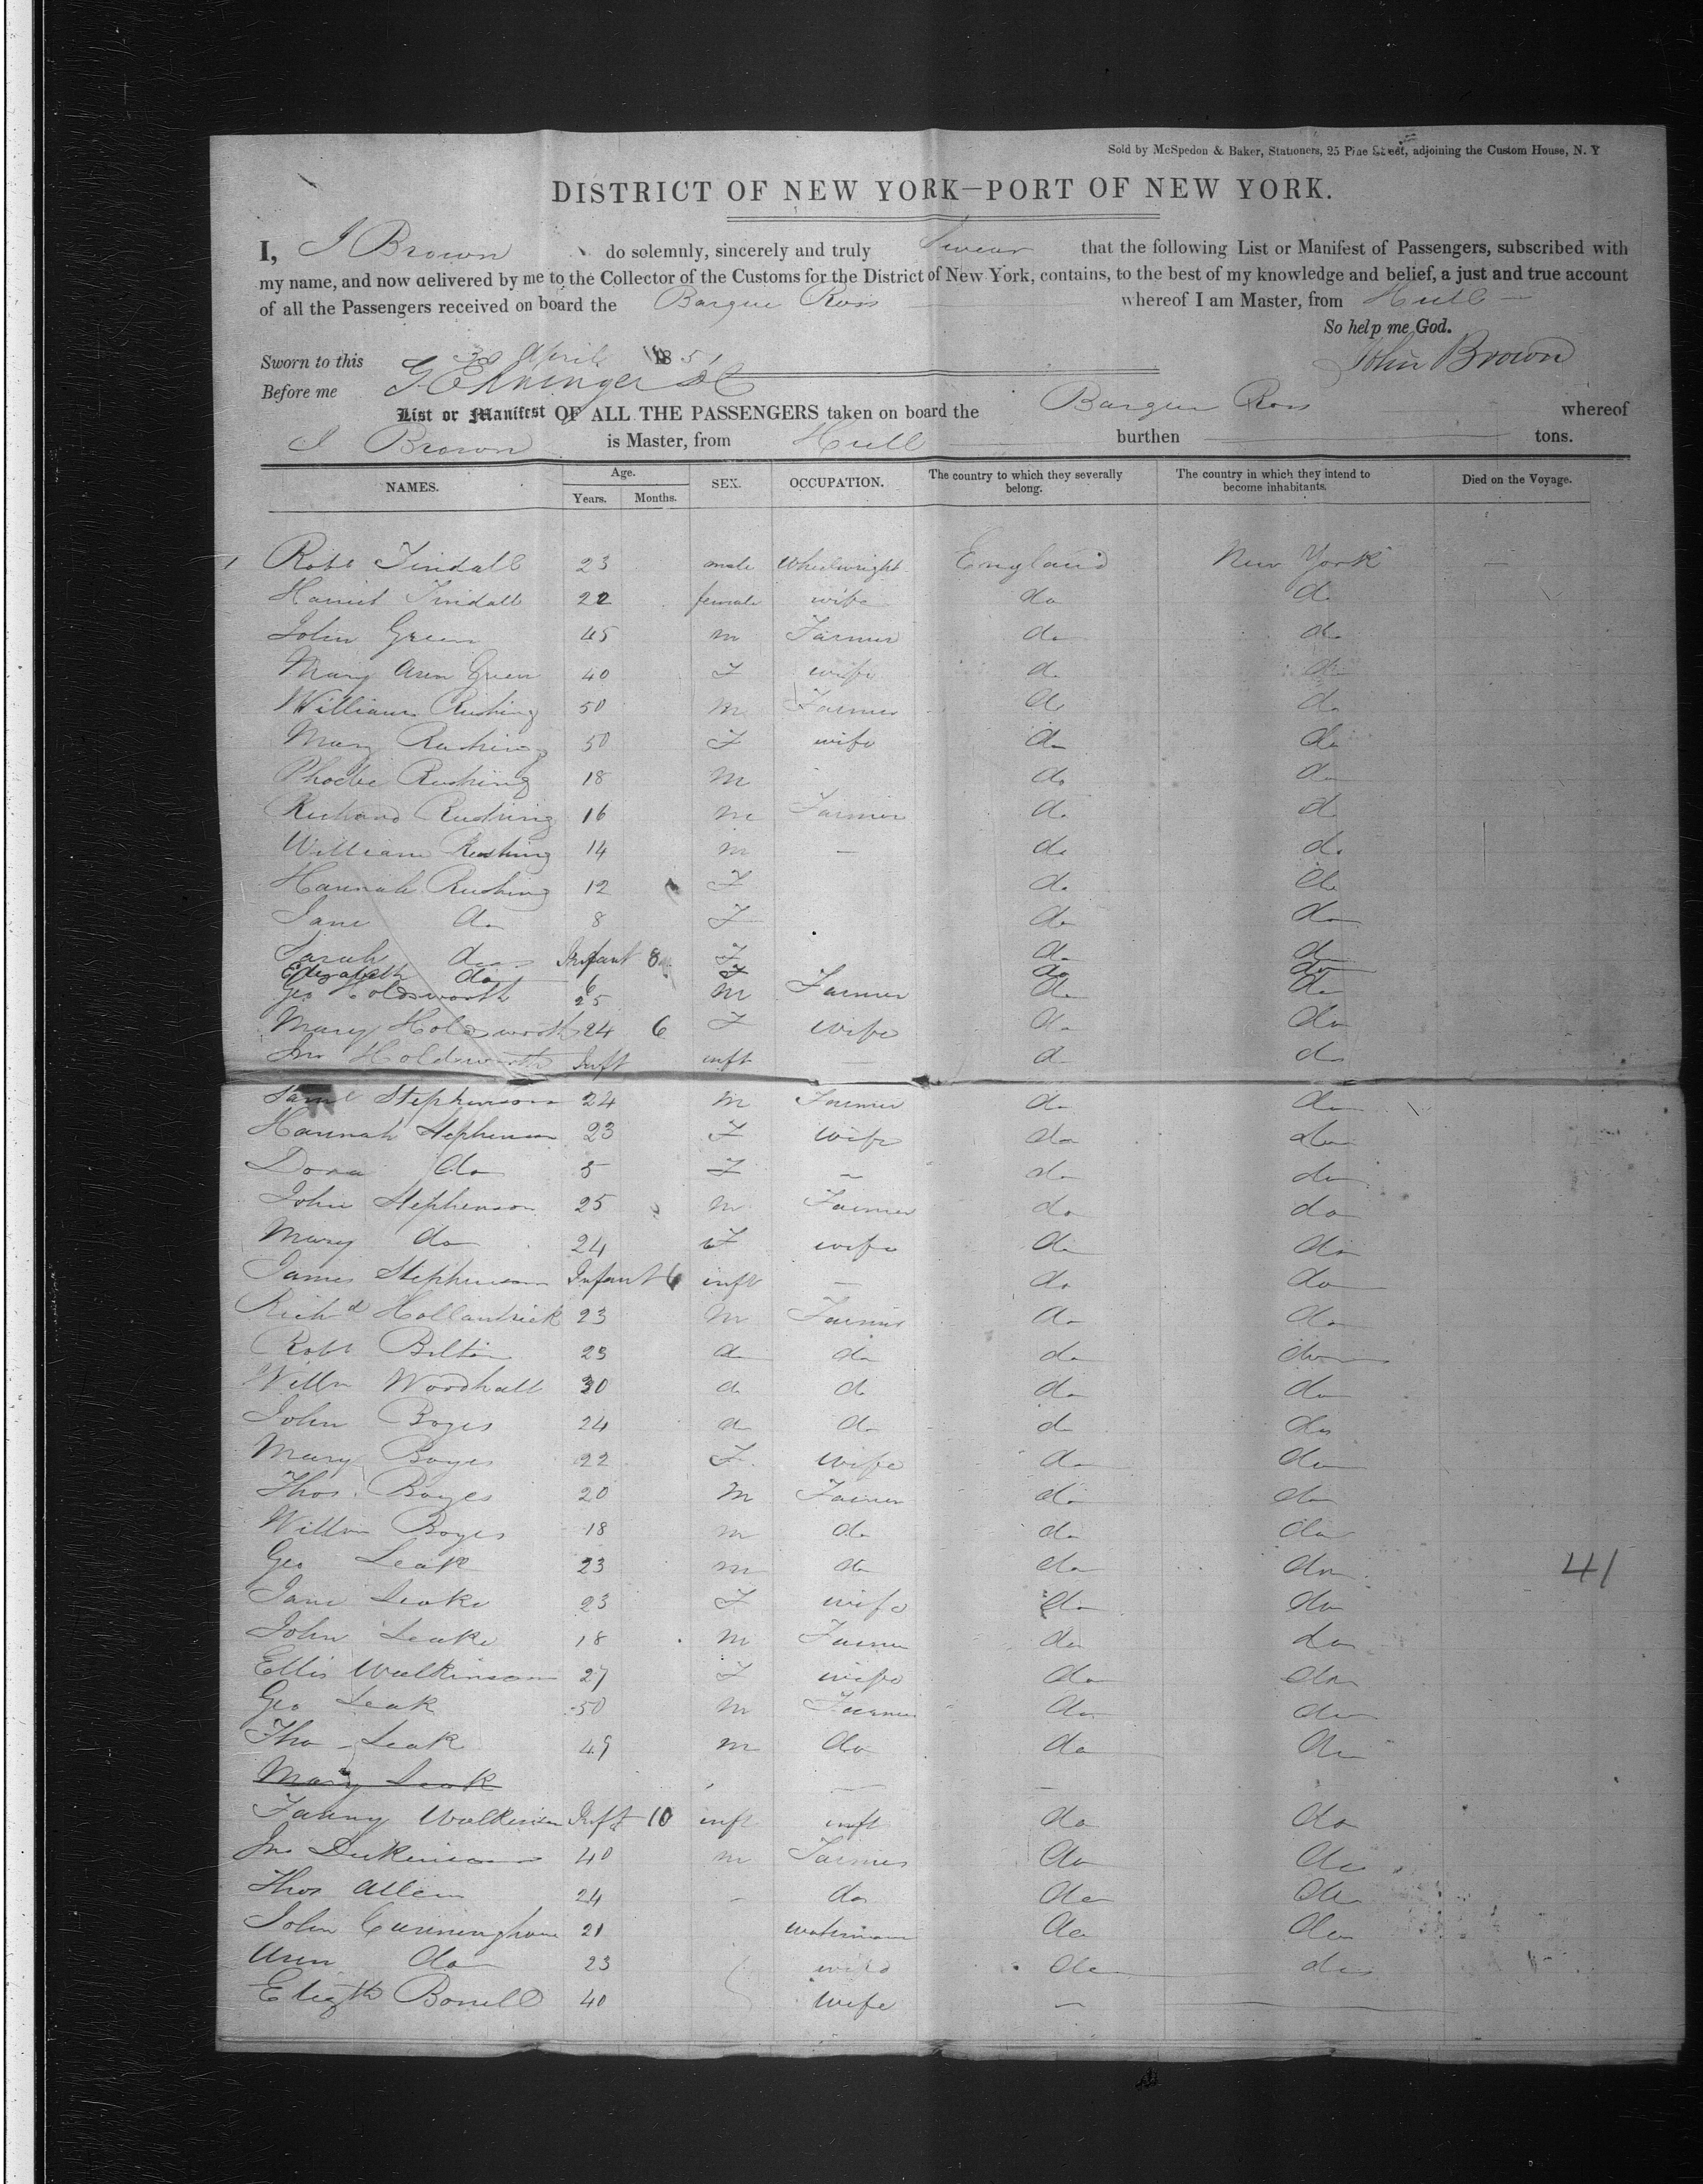 Sold by McSpedon & Baker, Stationers, 25 Pine Street, adjoining the Custom House, N. Y
DISTRICT OF NEW YORK—PORT OF NEW YORK.
I, J Brown do solemnly, sincerely and truly swear that the following List or Manifest of Passengers, subscribed with
my name, and now delivered by me to the Collector of the Customs for the District of New York, contains, to the best of my knowledge and belief, a just and true account
of all the Passengers received on board the Barque Ross whereof I am Master, from Hull
So help me God.
Sworn to this 30 April 1851 John Brown
Before me
List or Manifest OF ALL THE PASSENGERS taken on board the Barque Ross whereof
J Brown is Master, from Hull burthen tons.
NAMES. Age. Years. Months. SEX. OCCUPATION. The country to which they severally belong. The country in which they intend to become inhabitants. Died on the Voyage.
1 Robt Tindall 23 male Wheelwright England New York —
Harriet Tindall 22 female wife do do
John Green 45 m Farmer do do
Mary Ann Green 40 F wife do do
William Rushing 50 m Farmer do do
Mary Rushing 50 F wife do do
Phoebe Rushing 18 m do do
Richard Rushing 16 m Farmer do do
William Rushing 14 m — do do
Hannah Rushing 12 F do do
Jane do 8 F do do
Sarah do Infant 8 F do do
Elizabeth do 6 F do do
Geo Holdsworth 25 m Farmer do do
Mary Holdsworth 24 6 F wife do do
Jno Holdsworth Inft inft — do do
Saml Stephenson 24 m Farmer do do
Hannah Stephenson 23 F wife do do
Dora do 5 F — do do
John Stephenson 25 m Farmer do do
Mary do 24 F wife do do
James Stephenson Infant 6 inft — do do
Richd Hollantrick 23 m Farmer do do
Robt Bilton 23 do do do do
Willm Woodhall 30 do do do do
John Boyes 24 do do do do
Mary Boyes 22 F wife do do
Thos. Boyes 20 m Farmer do do
Willm Boyes 18 m do do do
Geo Leak 23 m do do do 41
Jane Leake 23 F wife do do
John Leake 18 m Farmer do do
Ellis Wilkinson 27 F wife do do
Geo Leak 50 m Farmer do do
Tho Leak 49 m do do do
Mary Leak
Fanny Wilkinson Inft 10 inft inft do do
Jno Dickinson 40 m Farmer do do
Thos Allen 24 - do do do
John Cunningham 21 waterman do do
Ann do 23 wife do do
Elizth 40 wife —